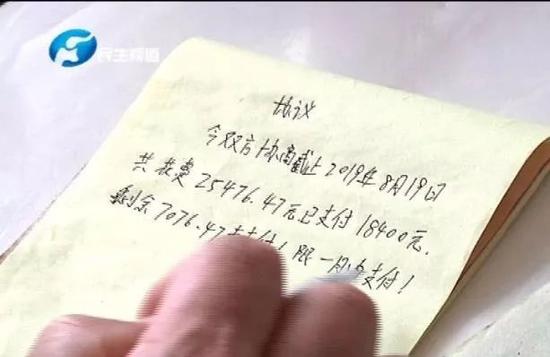 民生频道
协议
今双方协商截止2019年8月19日
共花费25476.47元已支付18400元.
剩余7076.47未支付!限一月内支付!